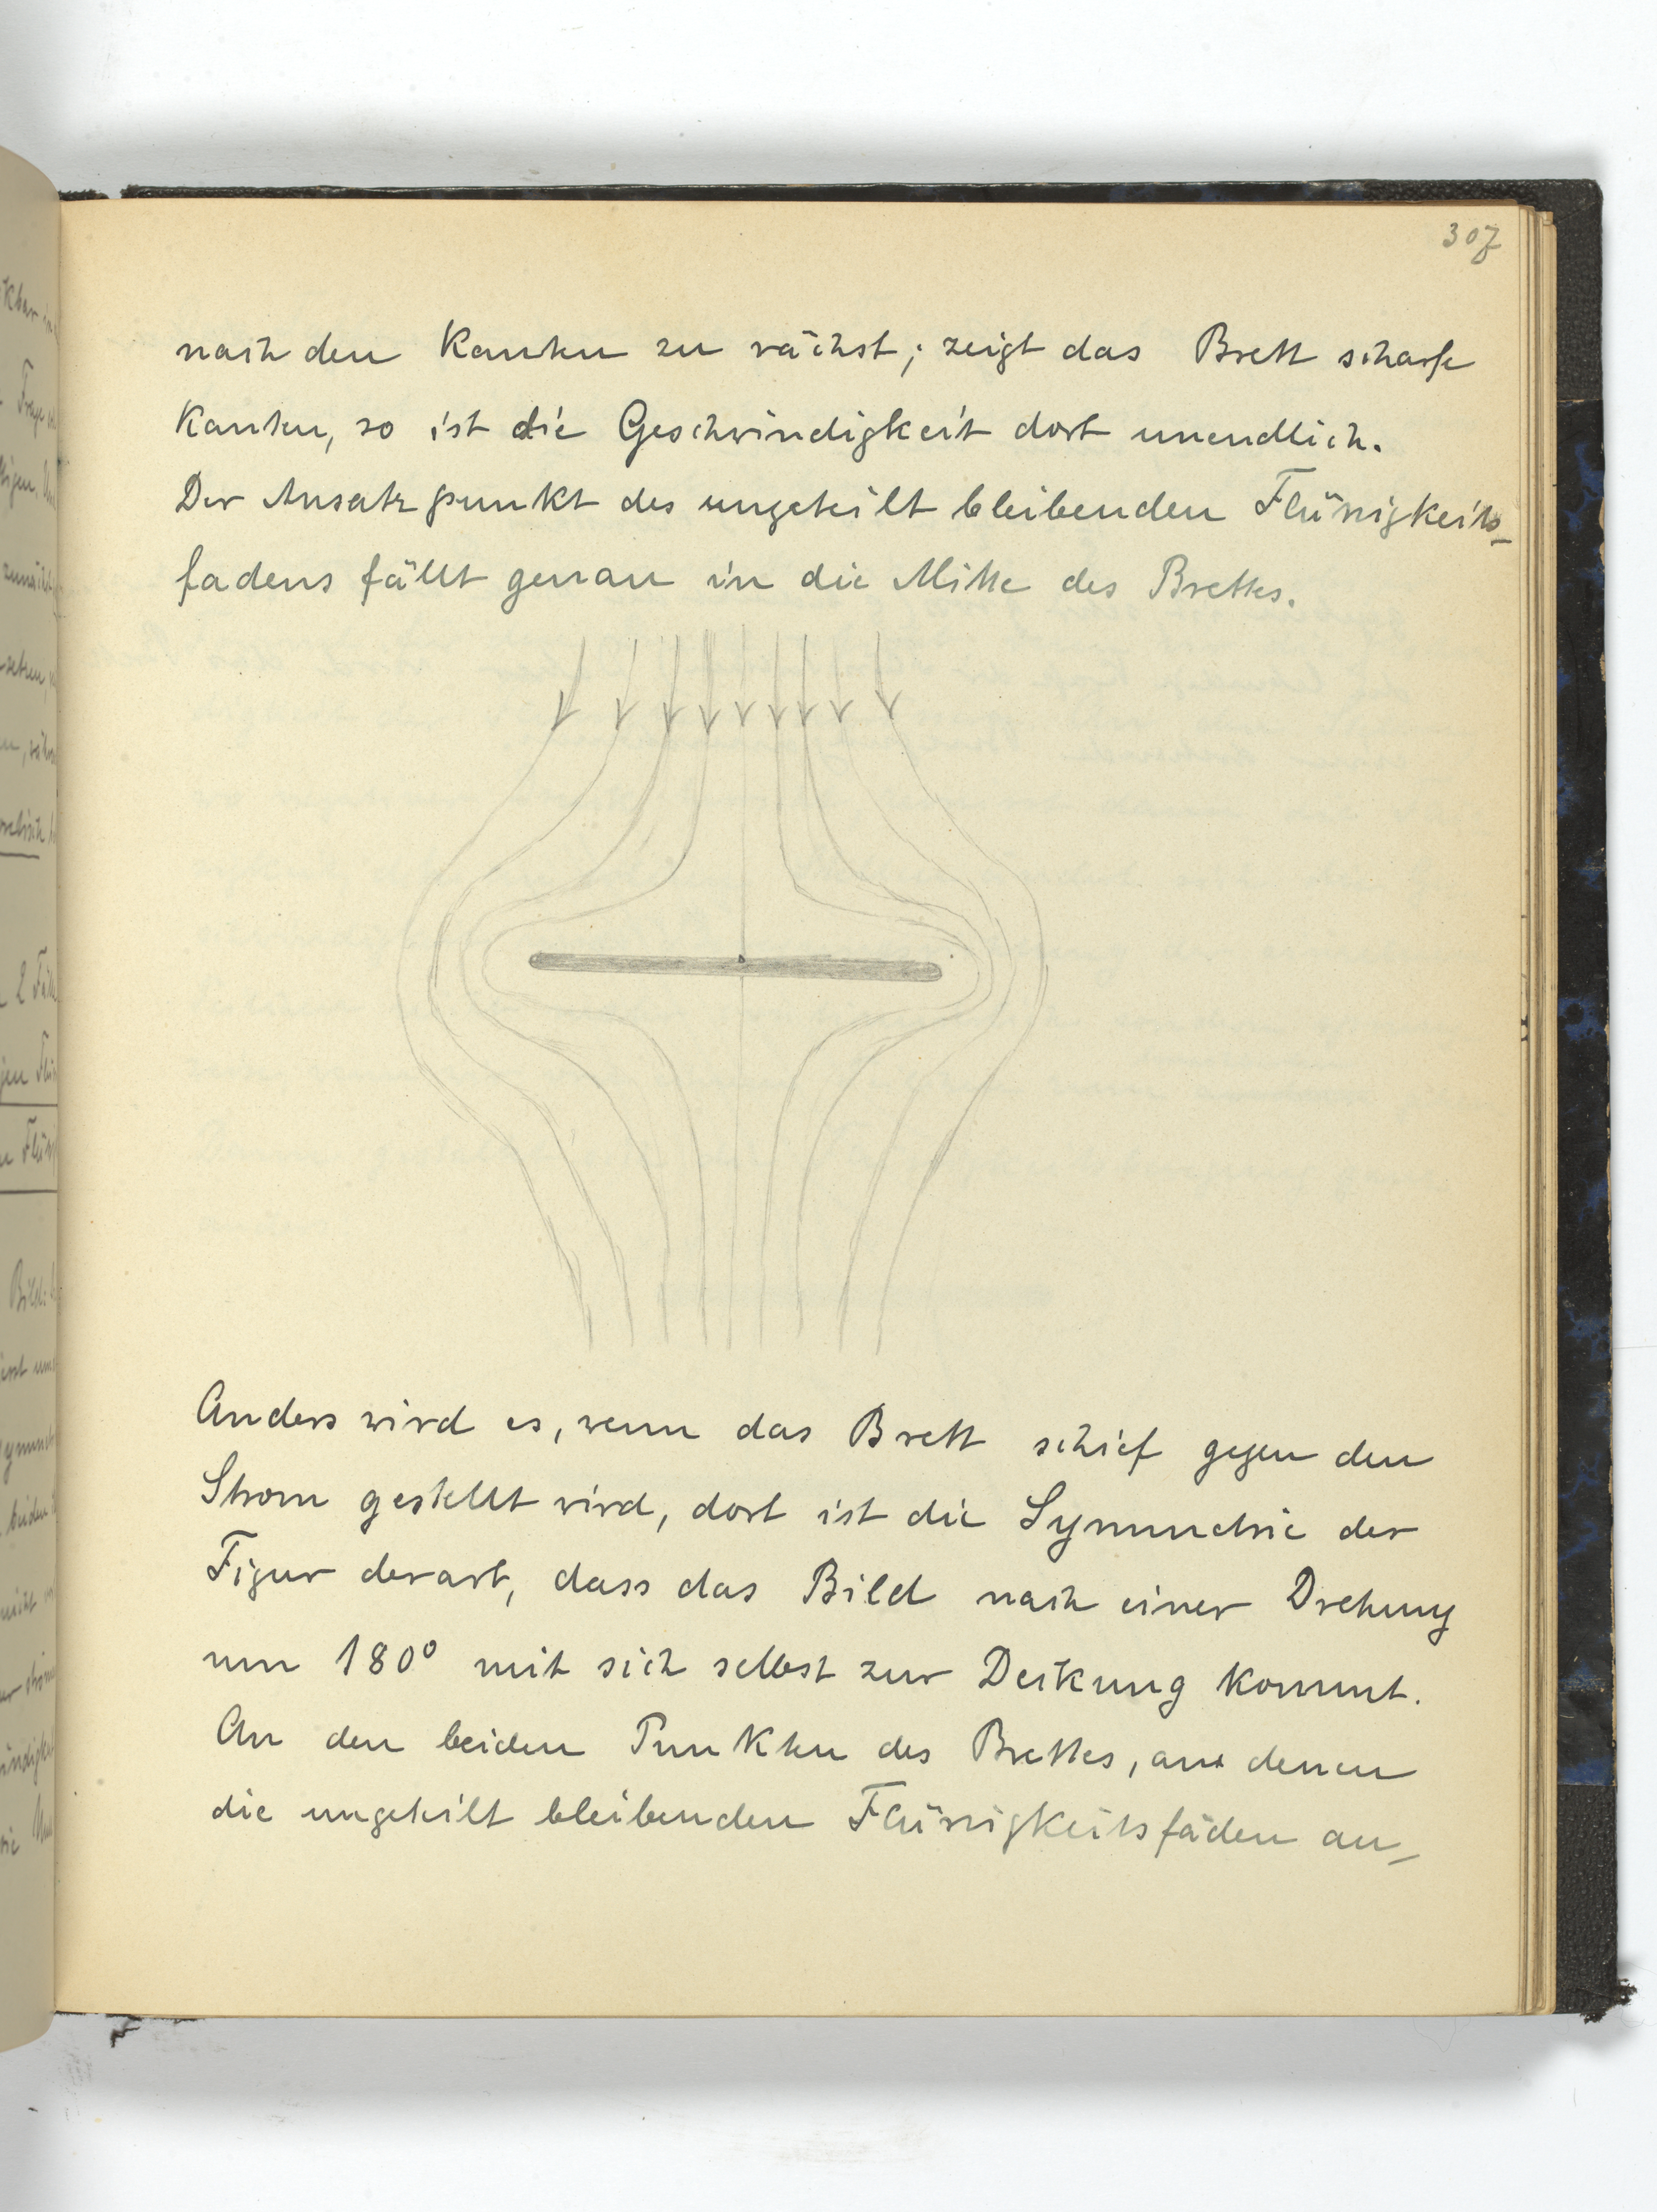 307
nach den Kanten zu wächst; zeigt das Brett scharfe
Kanten, so ist die Geschwindigkeit dort unendlich.
Der Ansatzpunkt des ungeteilt bleibenden Flüssigkeits-
fadens fällt genau in die Mitte des Brettes.
Anders wird es, wenn das Brett schief gegen den
Strom gestellt wird, dort ist die Symmetrie der
Figur derart, dass das Bild nach einer Drehung
um 180° mit sich selbst zur Deckung kommt.
An den beiden Punkten des Brettes, an denen
die ungeteilt bleibenden Flüssigkeitsfäden an-